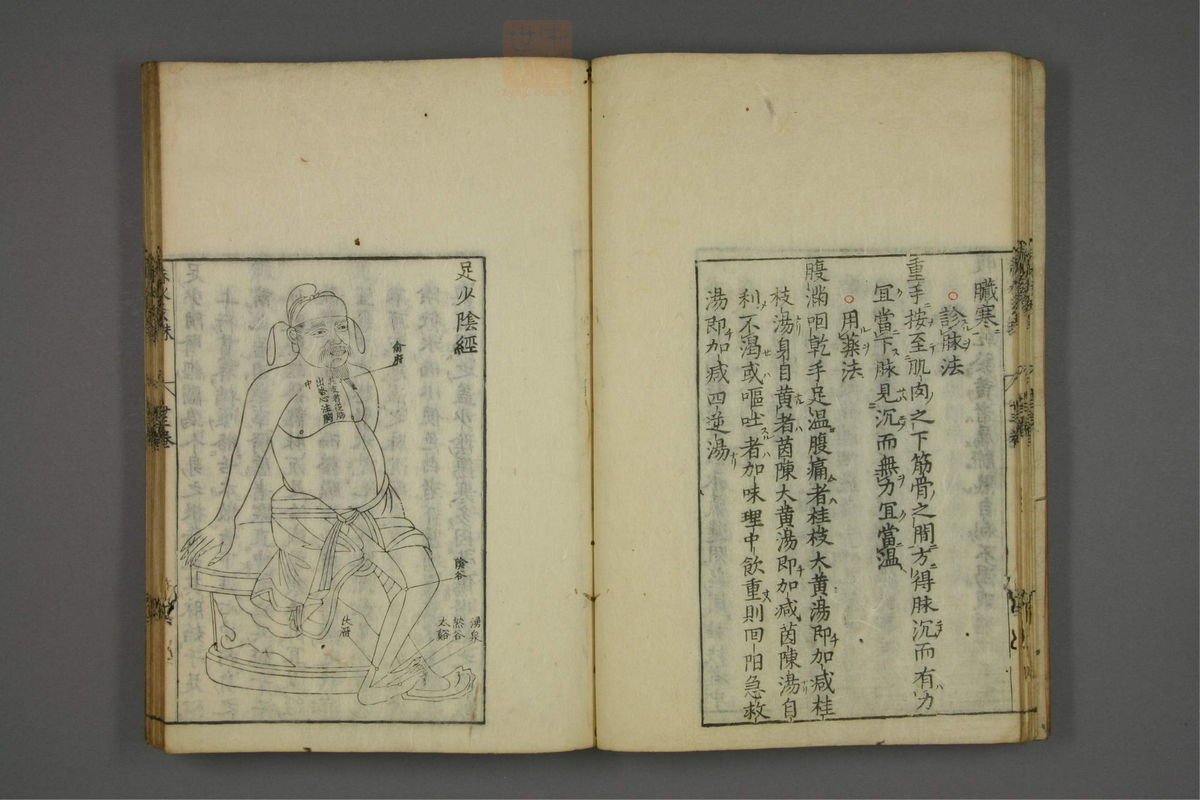 臓寒
診脉法
重手按至肌肉之下筋骨之間方得脉沉而有力
宜當下脉見沉而無力宜當温
用藥法
腹滿咽乾手足温腹痛者桂枝大黄湯即加减桂
枝湯身目黄者茵陳大黄湯即加减茵陳湯自
利不渴或嘔吐者加味理中飲重則回阳急救
湯即加减四逆湯
足少陰經
俞府
其支者從肺
出絡心注胸
中
陰谷
湧泉
然谷
太谿